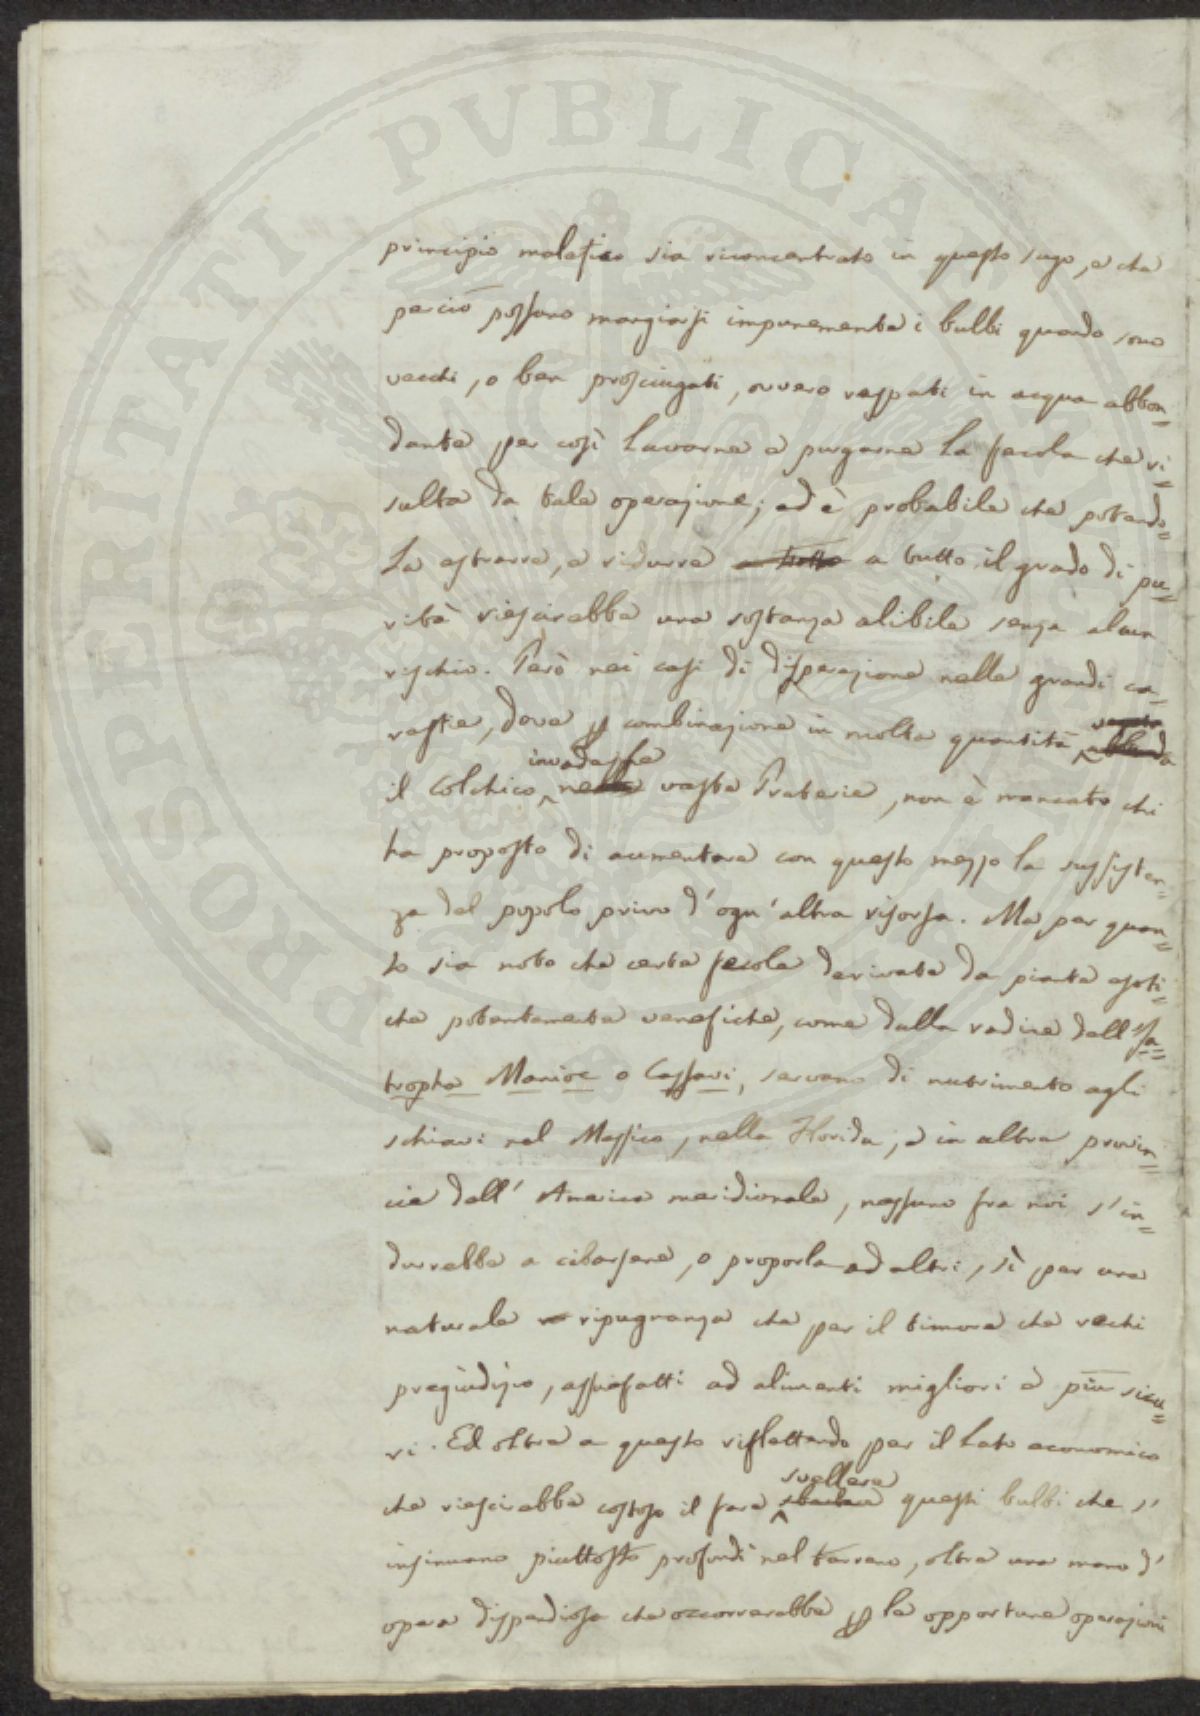 PROSPERITATI PVBLICAE
principio malefico sia riconcentrato in questo sugo, e che
perciò possano mangiarsi impunemente i bulbi quando sono
vecchi, o ben prosciugati, ovvero raspati in acqua abbon=
dante per così lavarne e purgarne la fecola che ri=
sulta da tale operazione; ed è probabile che potendo=
la estrarre, e ridurre a tutto a tutto il grado di pu=
rità riescirebbe una sostanza alibile senza alcun
rischio. Però nei casi di disperazione nelle grandi ca=
restie, dove per combinazione in molta quantità
invadesse
il Colchico nelle vaste Praterie, non è mancato chi
ha proposto di aumentare con questo mezzo la sussisten=
za del popolo privo d'ogn'altra risorsa. Ma per quan=
to sia noto che certe fecole derivate da piante esoti=
che potentemente venefiche, come dalla radice dell'Ja=
tropha Manioc o Cassavi, servano di nutrimento agli
schiavi nel Messico, nella Florida, e in altre provin=
cie dell'America meridionale, nessuno fra noi s'in=
durrebbe a cibarsene, o proporla ad altri, sì per una
naturale ripugnanza che per il timore che rechi
pregiudizio, assuefatti ad alimenti migliori e più sicu=
ri. Ed oltre a questo riflettendo per il lato economico
svellere
che riescirebbe costoso il fare questi bulbi che s'
insinuano piuttosto profondi nel terreno, oltre una mano d'
opera dispendiosa che occorrerebbe per le opportune operazioni